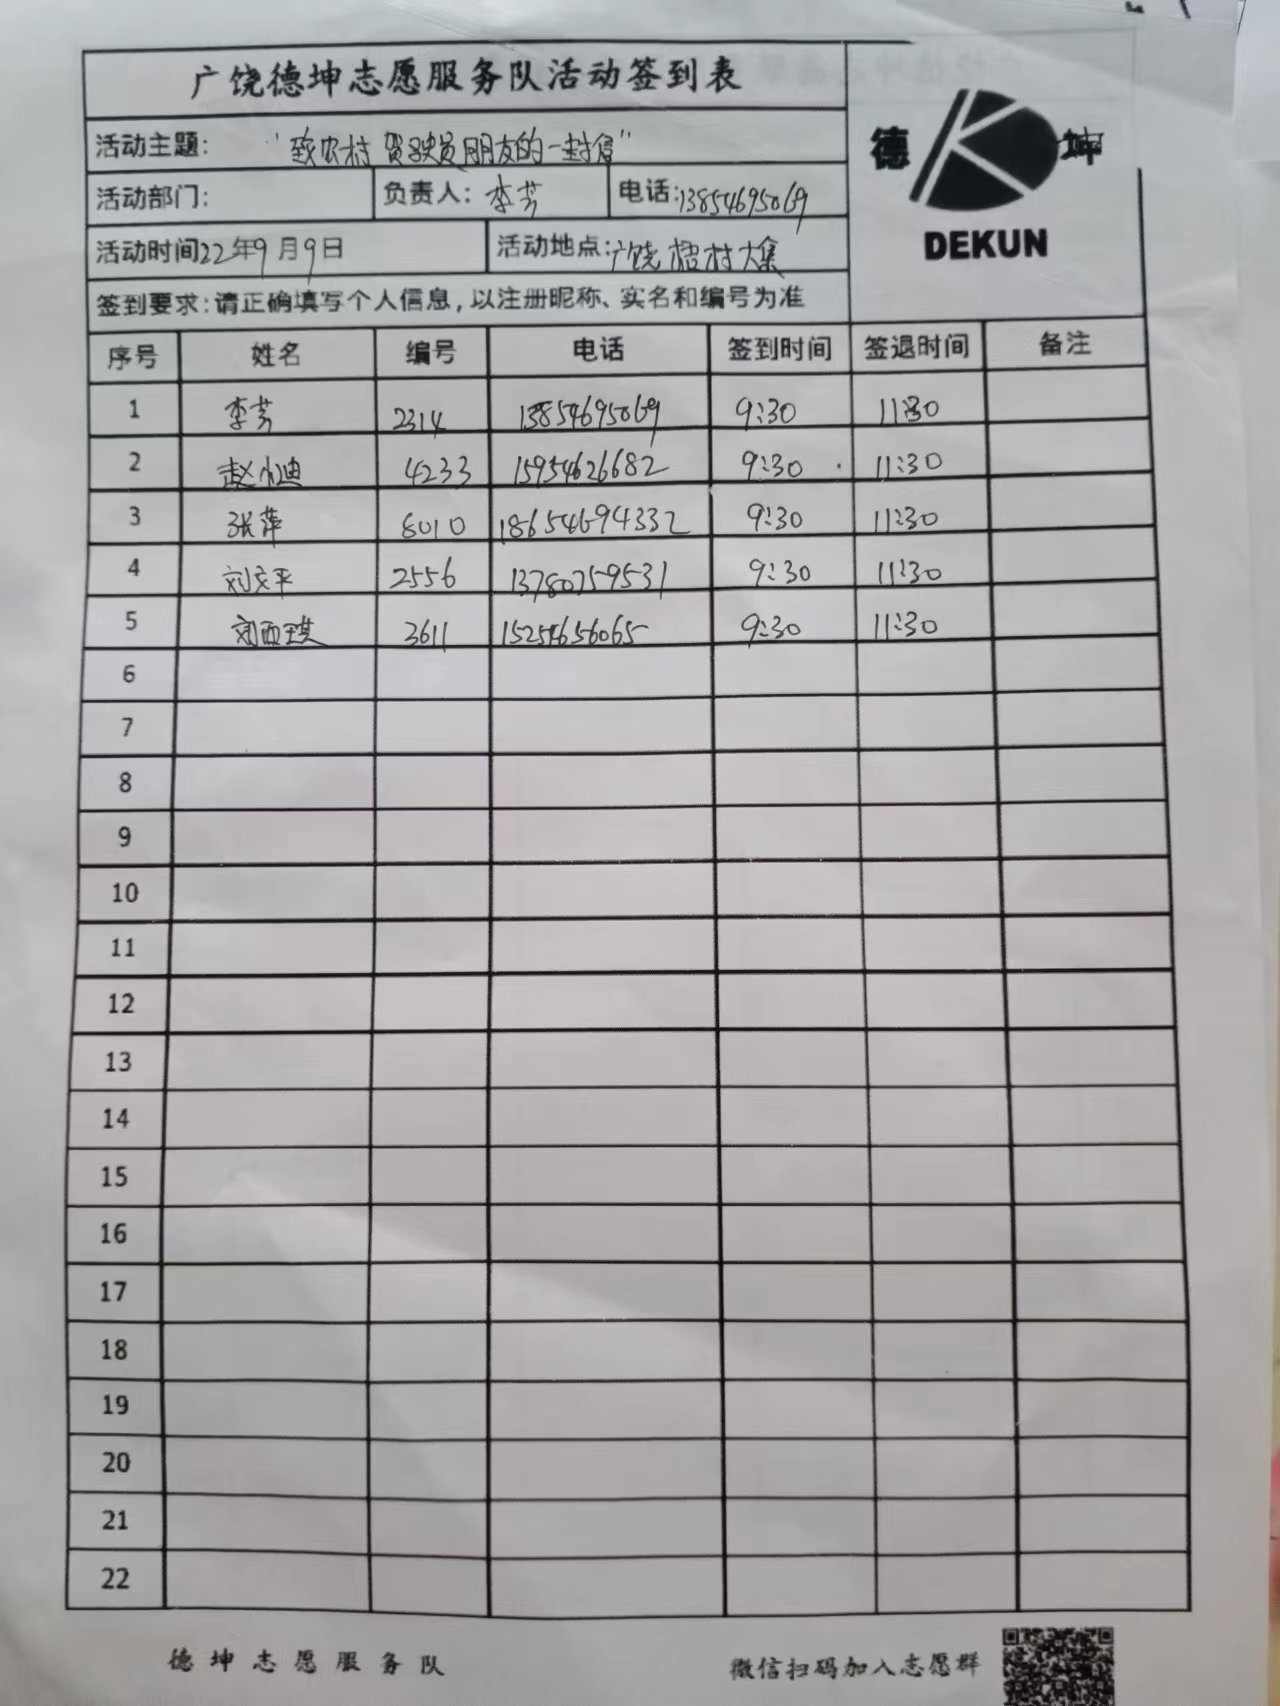 广饶德坤志愿服务队活动签到表
德 坤
DEKUN
活动主题： "致农村驾驶员朋友的一封信"
活动部门： 负责人：李芳 电话：13854695069
活动时间22年9月9日 活动地点：广饶 梧村大集
签到要求：请正确填写个人信息，以注册昵称、实名和编号为准
序号 姓名 编号 电话 签到时间 签退时间 备注
1 李芳 2314 13854695069 9:30 11:30
2 赵小迪 4233 15954626682 9:30 11:30
3 张萍 6010 18654694332 9:30 11:30
4 刘文平 2556 13780759531 9:30 11:30
5 刘 3611 15254656065 9:30 11:30
6
7
8
9
10
11
12
13
14
15
16
17
18
19
20
21
22
德坤志愿服务队 微信扫码加入志愿群